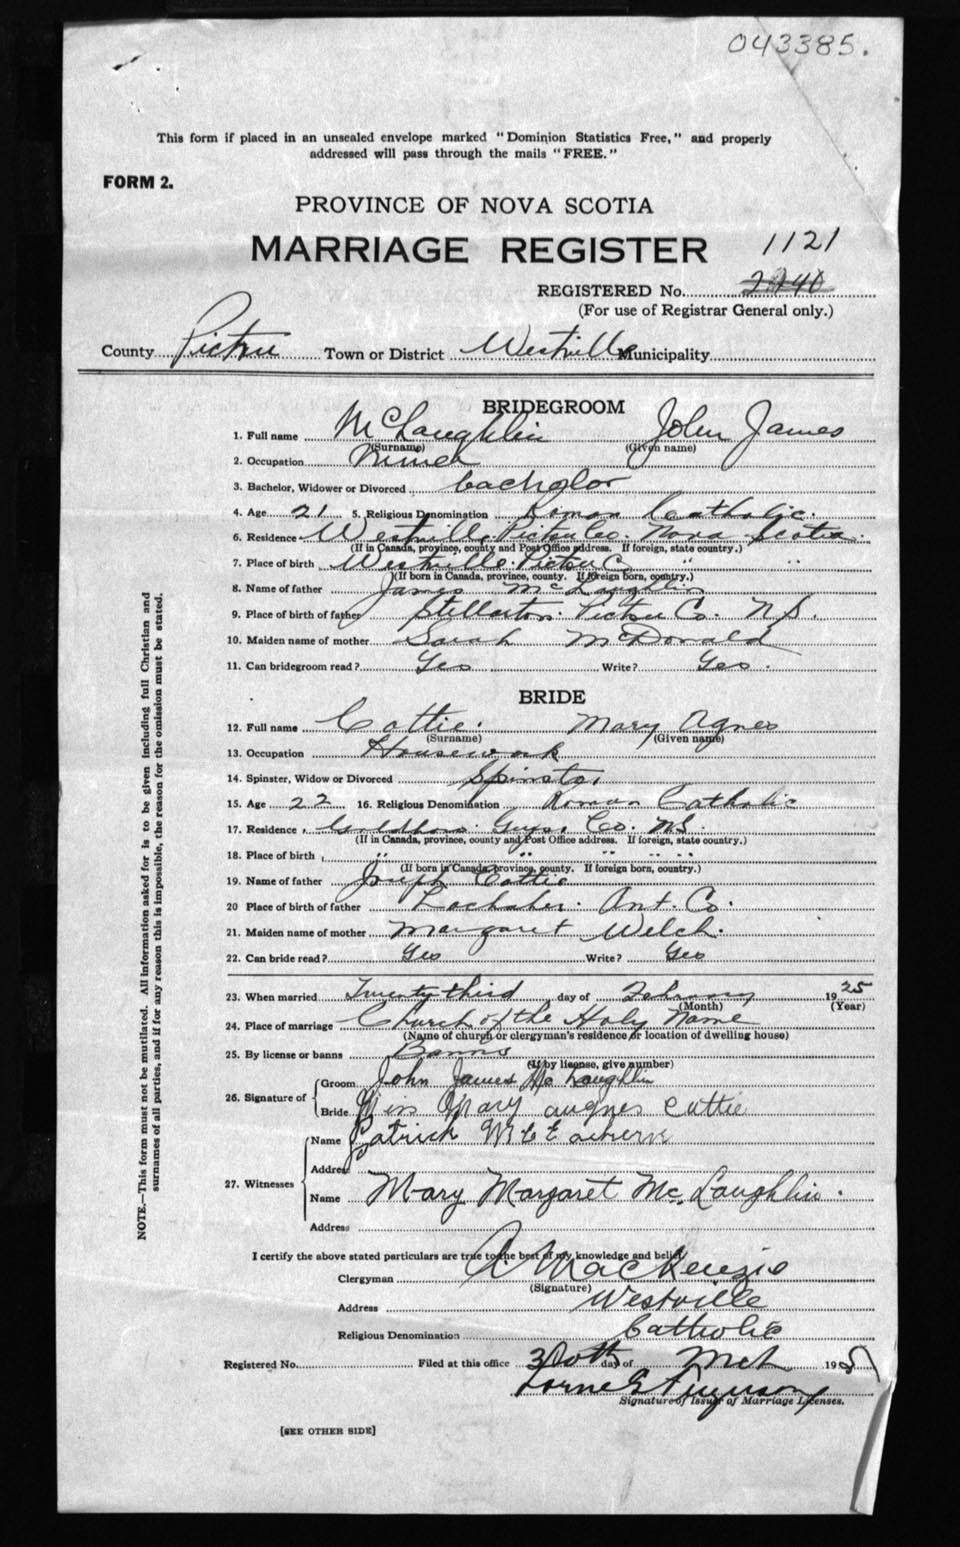 043385.
This form if placed in an unsealed envelope marked "Dominion Statistics Free," and properly
addressed will pass through the mails "FREE."
FORM 2.
PROVINCE OF NOVA SCOTIA
MARRIAGE REGISTER 1121
REGISTERED No.
(For use of Registrar General only.)
County Pictou Town or District Westville Municipality
BRIDEGROOM
1. Full name McLaughlin John James
(Surname) (Given name)
2. Occupation Miner
3. Bachelor, Widower or Divorced bachelor
4. Age 21 5. Religious Denomination Roman Catholic.
6. Residence Westville Pictou Co. Nova Scotia.
(If in Canada, province, county and Post Office address. If foreign, state country.)
7. Place of birth Westville Pictou Co " "
(If born in Canada, province, county. If foreign born, country.)
8. Name of father James McLaughlin
9. Place of birth of father Stellarton Pictou Co. N.S.
10. Maiden name of mother Sarah McDonald
11. Can bridegroom read? Yes Write? Yes.
BRIDE
12. Full name Cottie. Mary Agnes
(Surname) (Given name)
13. Occupation Housework
14. Spinster, Widow or Divorced Spinster
15. Age 22 16. Religious Denomination Roman Catholic
17. Residence Goldboro Guys. Co. N.S.
(If in Canada, province, county and Post Office address. If foreign, state country.)
18. Place of birth " " " " "
(If born in Canada, province, county. If foreign born, country.)
19. Name of father Joseph Cottie
20 Place of birth of father Lochaber. Ant. Co.
21. Maiden name of mother Margaret Welch.
22. Can bride read? Yes Write? Yes
23. When married Twenty third day of February 1925
(Month) (Year)
24. Place of marriage Church of the Holy Name
(Name of church or clergyman's residence or location of dwelling house)
25. By license or banns Banns
(If by license, give number)
26. Signature of Groom John James McLaughlin
Bride Miss Mary augnes Cottie
27. Witnesses Name Patrick McEachern
Address
Name Mary Margaret McLaughlin.
Address
I certify the above stated particulars are true to the best of my knowledge and belief.
Clergyman A MacKenzie
(Signature)
Address Westville
Religious Denomination Catholic
Registered No. Filed at this office 30th day of Mch 192
Lorne G Ferguson
Signature of Issuer of Marriage Licenses.
[SEE OTHER SIDE]
NOTE.—This form must not be mutilated. All information asked for is to be given including full Christian and
surnames of all parties, and if for any reason this is impossible, the reason for the omission must be stated.